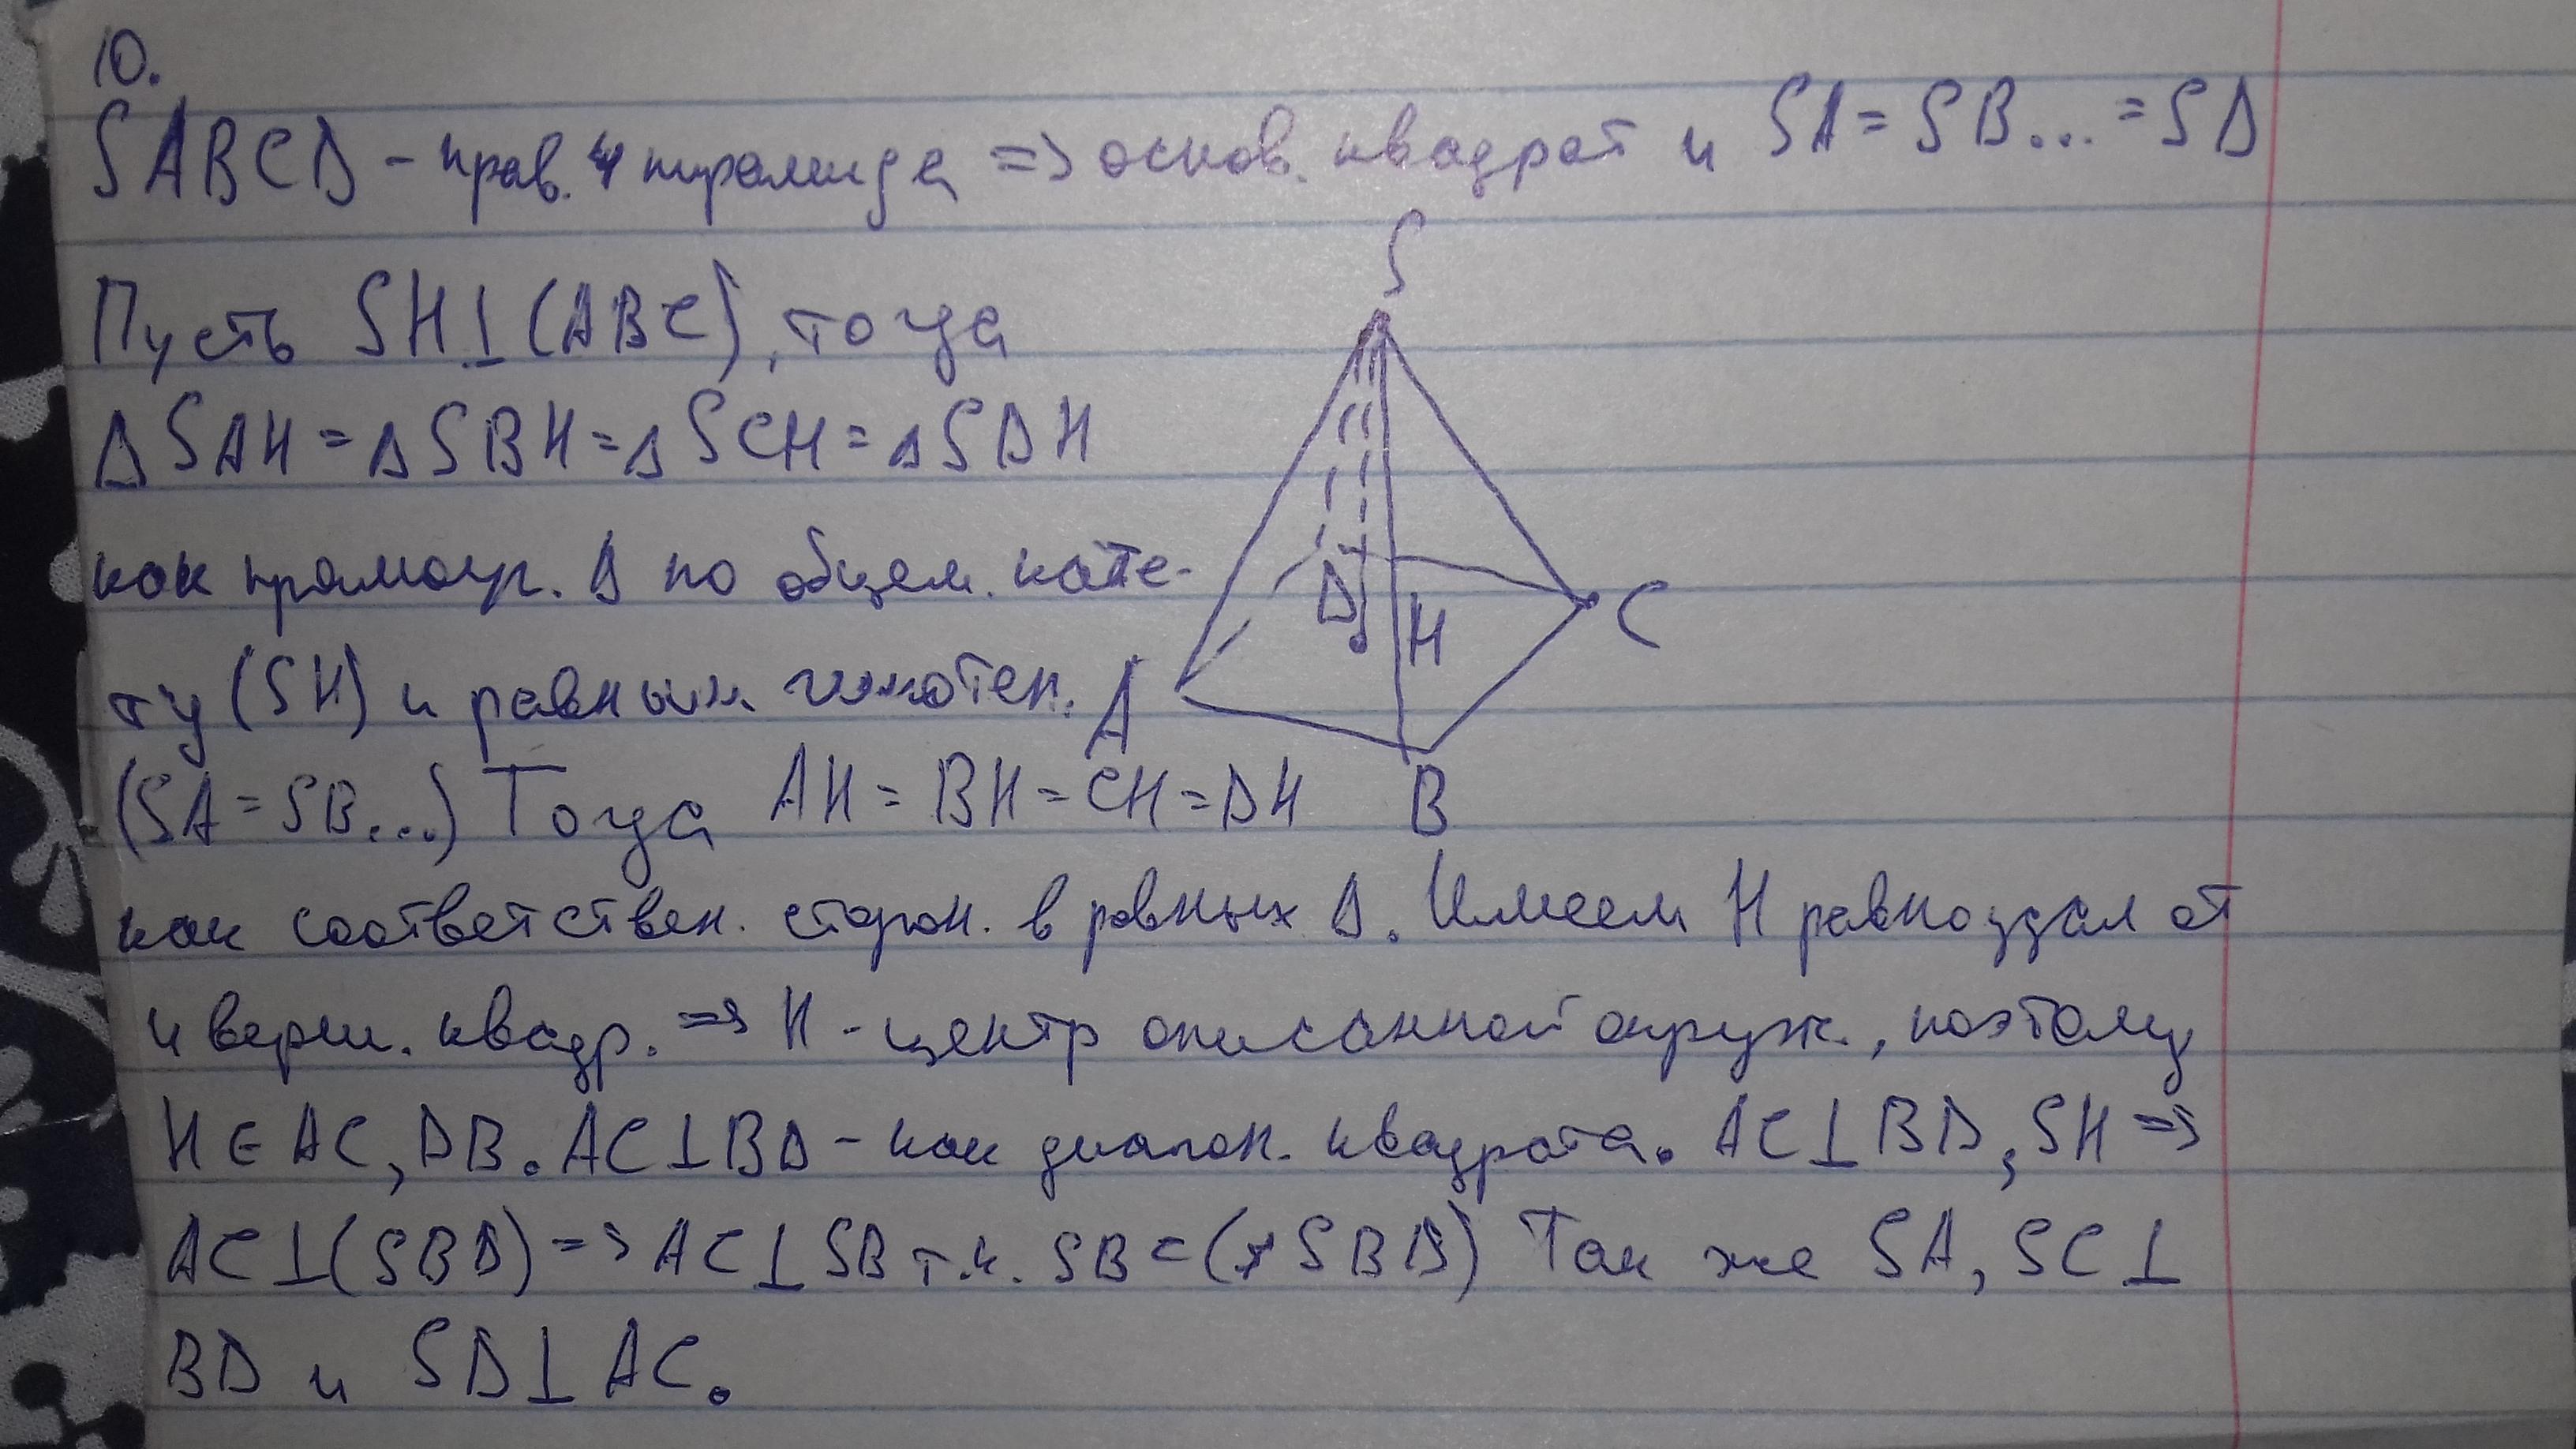 10.
SABCD - прав. 4 пирамида => основ. квадрат и SA = SB... = SD
S
Пусть SH⊥(ABC), тогда
∆SAH = ∆SBH = ∆SCH = ∆SDH
как прямоуг. ∆ по общем. кате-
D
H
C
ту (SH) и равным гипотен.
A
(SA = SB...) Тогда AH = BH = CH = DH
B
как соответствен. сторон. в равных ∆. Имеем H равноудал от
4 верш. квадр. => H - центр описанной окруж., поэтому
H ∈ AC, DB. AC⊥BD - как диагон. квадрата. AC⊥BD, SH =>
AC⊥(SBD) => AC⊥SB т.к. SB ⊂ (SBD) Так же SA, SC⊥
BD и SD⊥AC.